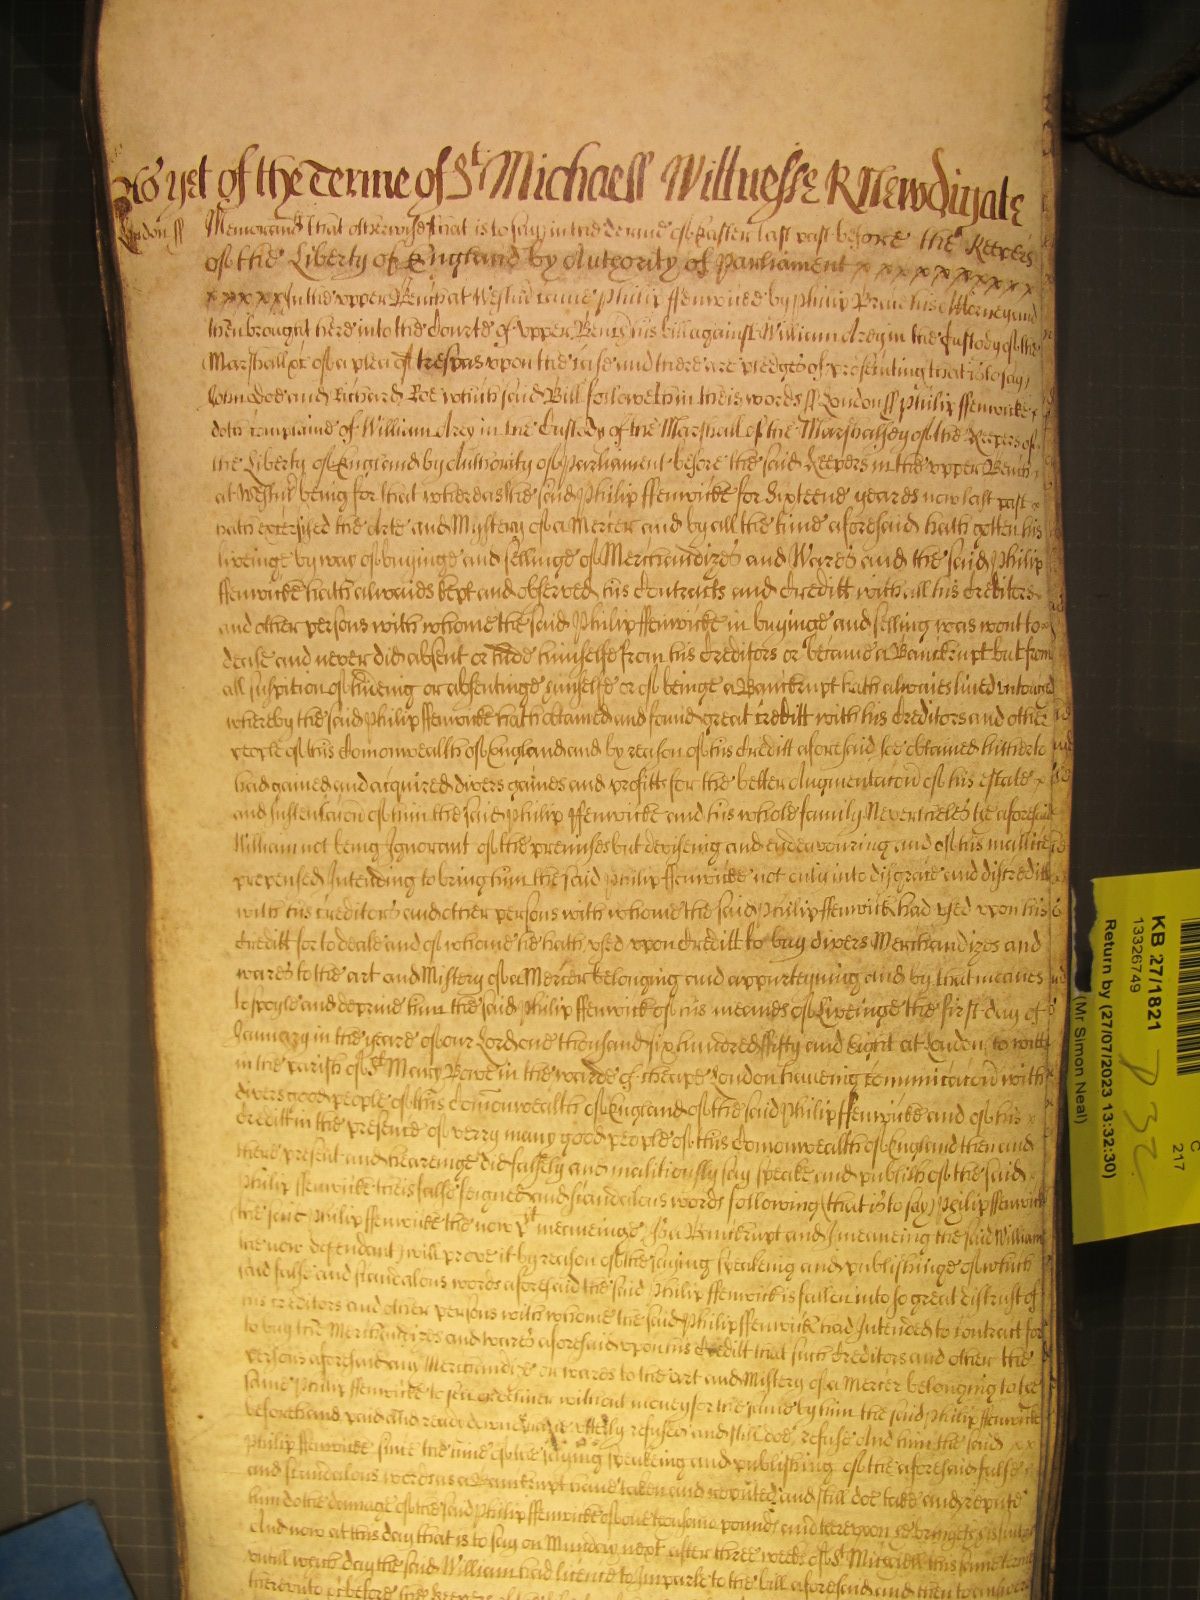 As yet of the Terme of St Michaell Wittnesse R Newdigate
London ss Memorand that otherwise that is to say in the Terme of Easter last past before the Keepers
of the Liberty of England by Authority of Parliament x x x x x x x x x
x x x x x In the upper Bench at Westm came Philip ffenwicke by Philip his Attorney and
then brought here into the Courte of upper Bench his bill against William Arey in the Custody of the
Marshall &c of a plea of trespas upon the case and there are pledges of prosecuting that is to say
John Doe and Richard Roe which said Bill followeth in theis words ss London ss Philip ffenwicke x
doth complaine of William Arey in the Custody of the Marshall of the Marshalsey of the Keepers of
the Liberty of England by Authority of Parliament before the said Keepers in the upper Bench
at Westm being for that whereas the said Philip ffenwicke for Sixteene yeares now last past x
hath exersyed the Arte and Mystery of a Mercer and by all the time aforesaid hath gotten his
liveinge by way of buyinge and sellinge of Merchandizes and Wares and the said Philip
ffenwicke hath alwaids kept and observed his Contracts and Creditt with all his Creditors
and other persons with whome the said Philip ffenwicke in buyinge and selling was wont to
deale and never did absent or hide himselfe from his Creditors or became a Banckrupt but from
all suspition of hideinge or absentinge himselfe or of beinge a Banckrupt hath alwaies lived untouched
whereby the said Philip ffenwicke hath obtained and found great Creditt with his Creditors and other
people of this Comonwealth of England and by reason of his Creditt aforesaid soe obtained hitherto
had gained and acquired divers gaines and profitts for the better Augmentacion of his estate x
and sustentacion of him the said Philip ffenwicke and his whole family Neverthelesse the aforesaid
William not being Ignorant of the premises but deviseing and endeavouring and of his mallice
prepensed Intending to bring him the said Philip ffenwicke not only into disgrace and discreditt
with his Creditors and other persons with whome the said Philip ffenwicke had used upon his
Creditt for to deale and of whome he hath used upon Creditt to buy divers Merchandizes and
wares to the art and Mistery of a Mercer belonging and appurteyning and by that meanes
to spoyle and deprive him the said Philip ffenwicke of his meanes of Liveinge the first day of
January in the yeare of our Lord one thousand six hundred fifty and Eight at London to witt
in the parish of St Mary Bowe in the warde of Cheape London haveing Communicacion with
divers good people of this Comonwealth of England of the said Philip ffenwicke and of his x
Creditt in the presence of verry many good people of this Comonwealth of England then and
there present and heareinge did falsely and malitiously say speake and publish of the said
Philip ffenwicke theis false feigned and scandalous words following (that is to say) Philip ffenwicke
the said Philip ffenwicke the now plt meaneinge Is a Banckrupt and I meaneing the said William
the now defendant) will prove it by reason of the saying speaking and publishinge of which
said false and scandalous words aforesaid the said Philip ffenwicke is fallen into so great distrust of
his Creditors and other persons with whome the said Philip ffenwicke had Intended to contract for
to buy the Merchandizes and wares aforesaid upon his Creditt that such Creditors and other the
persons aforesaid any Merchandize or wares to the art and Mistery of a Mercer belonging to the
same Philip ffenwicke to sell or deliver without money for the same by him the said Philip ffenwicke
beforehand paid and ready downe utterly refused and still doe refuse And him the said x x
Philip ffenwicke since the time of the saying speakeing and publishing of the aforesaid false
and scandalous words as a Banckrupt have taken and reputed and still doe take and repute
him to the damage of the said Philip ffenwicke of one thousand pounds and thereupon he bringeth his suite
And now at this day that is to say on Munday next after three weeks of St Michael this same terme
untill which day the said William had licence to Imparle to the bill aforesaid and then to answere
thereunto &c before the Keepers of the
KB 27/1821
13326749
Return by (27/07/2023 13:32:30)
(Mr Simon Neal)
217